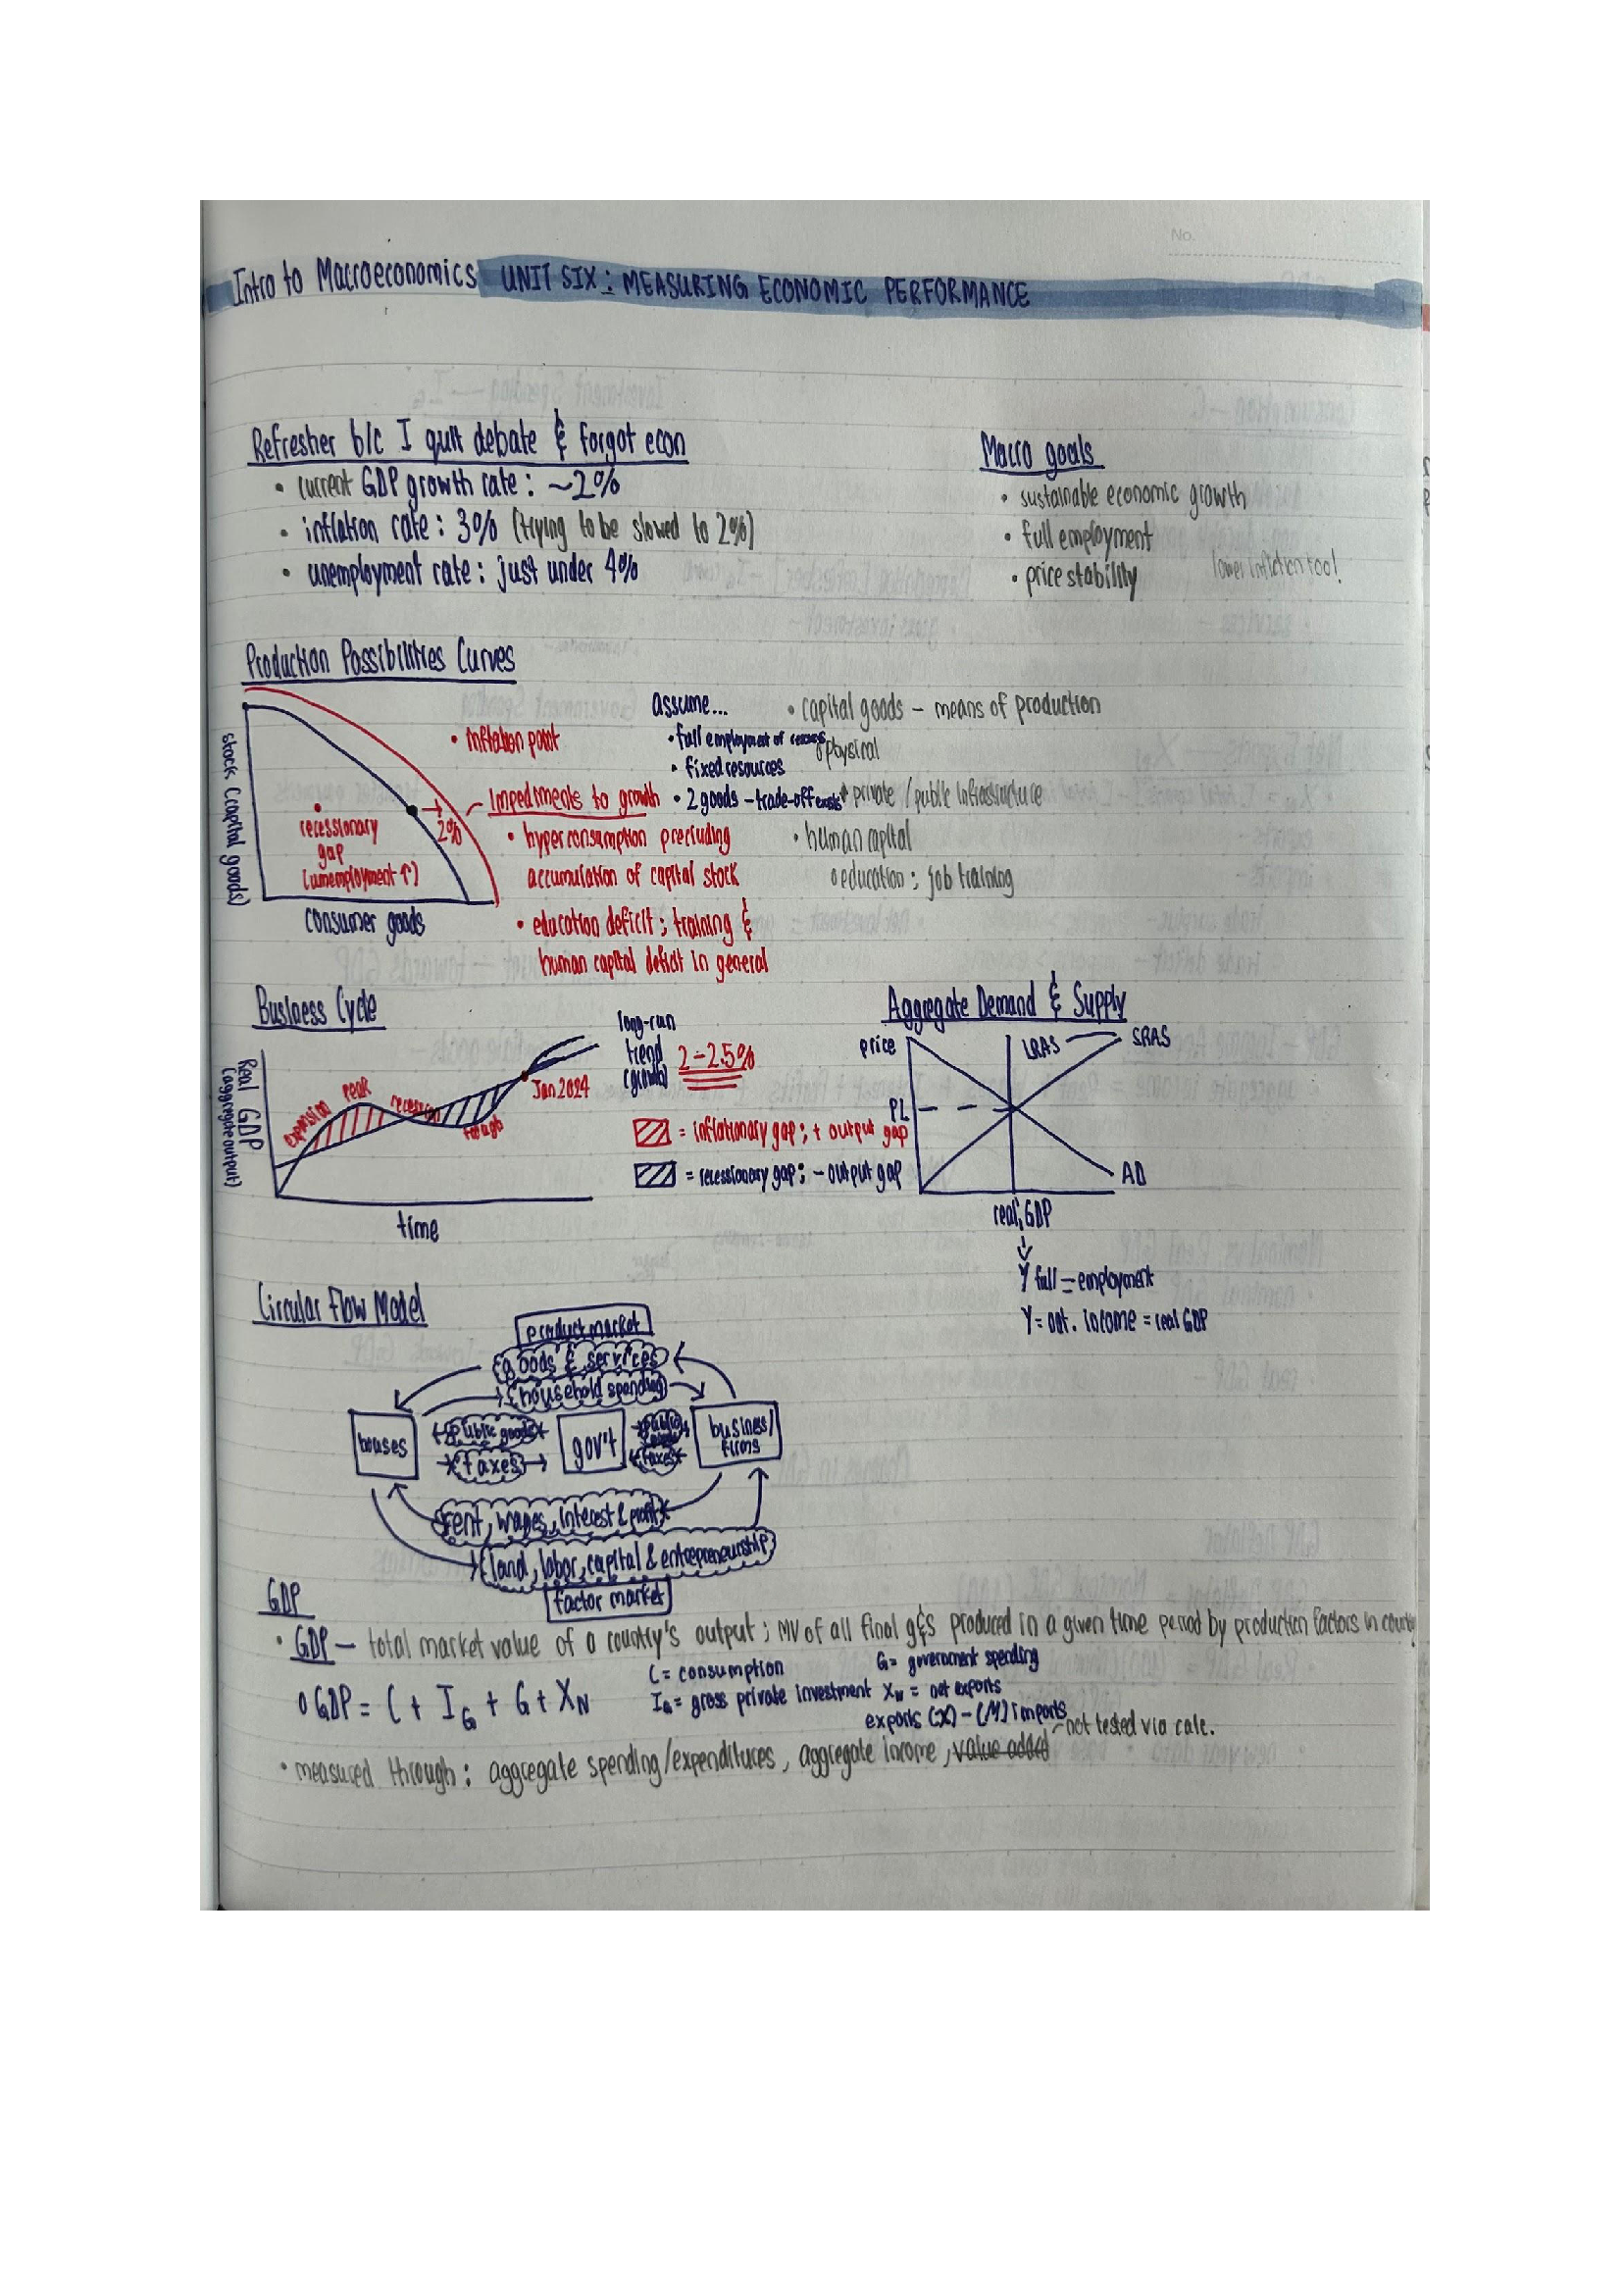 No.
Intro to Macroeconomics UNIT SIX: MEASURING ECONOMIC PERFORMANCE
Refresher b/c I quit debate & forgot econ
• current GDP growth rate: ~2%
• inflation rate: 3% (trying to be slowed to 2%)
• unemployment rate: just under 4%
Macro goals
• sustainable economic growth
• full employment
• price stability
lower inflation too!
Production Possibilities Curves
stock (capital goods)
consumer goods
recessionary
gap
(unemployment ↑)
→
2%
• inflation point
Impediments to growth
• hyperconsumption precluding
accumulation of capital stock
• education deficit; training &
human capital deficit in general
assume...
• full employment of
• fixed resources
• 2 goods – trade-off exists
• capital goods – means of production
physical
private / public infrastructure
• human capital
o education; job training
Business Cycle
Real GDP
(aggregate output)
expansion
peak
recession
trough
Jan 2024
time
long-run
trend
(growth)
2-2.5%
= inflationary gap; + output gap
= recessionary gap; – output gap
Aggregate Demand & Supply
price
LRAS
SRAS
PL
AD
real GDP
↓
Y full-employment
Y = nat. income = real GDP
Circular Flow Model
product market
goods & services
household spending
houses
public goods
taxes
gov't
public
taxes
business/
firms
rent, wages, interest & profit
land, labor, capital & entrepreneurship
factor market
GDP
• GDP – total market value of a country's output; MV of all final g&s produced in a given time period by production factors in country
o GDP = C + IG + G + XN
C = consumption
IG = gross private investment
G = government spending
XN = net exports
exports (X) – (M) imports
• measured through: aggregate spending/expenditures, aggregate income, value added
not tested via calc.